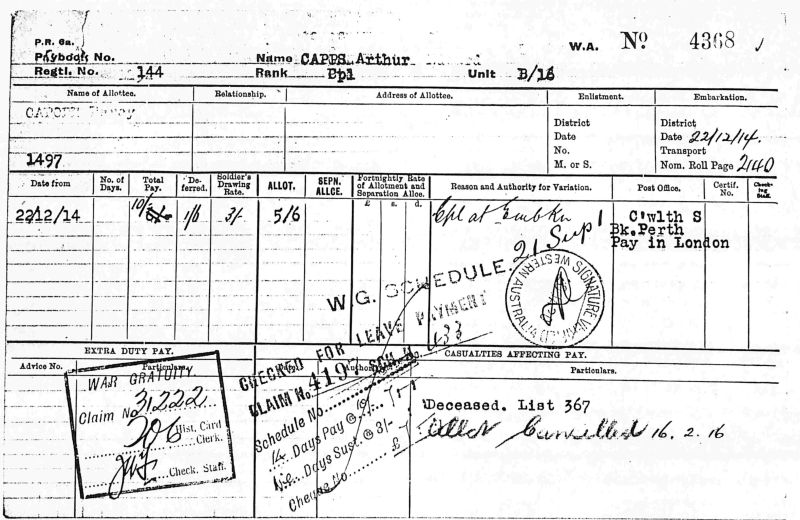 P.R. 6a.
Paybook No.
Name CAPPS Arthur
W.A. No 4368
Regtl. No. 144
Rank Cpl
Unit B/16
Name of Allottee.
Relationship.
Address of Allottee.
Enlistment.
Embarkation.
District
Date
No.
M. or S.
District
Date 22/12/14.
Transport
Nom. Roll Page 2140
1497
Date from
No. of Days.
Total Pay.
De-ferred.
Soldier's Drawing Rate.
ALLOT.
SEPN. ALLCE.
Fortnightly Rate of Allotment and Separation Allce.
£ s. d.
Reason and Authority for Variation.
Post Office.
Certif. No.
Check-ing Staff.
22/12/14
10/-
1/6
3/-
5/6
Cpl at Embkn
21 Sup 1
C'wlth S
Bk.Perth
Pay in London
W.G. SCHEDULE.
WESTERN AUSTRALIA
SIGNATURE
EXTRA DUTY PAY.
CASUALTIES AFFECTING PAY.
Advice No.
Particulars.
Particulars.
WAR GRATUITY
Claim No 31222
206
Hist. Card Clerk.
Check. Staff.
CHECKED FOR LEAVE PAYMENT
CLAIM No. 4197 SCH. H. 433
Schedule No
14 Days Pay @ 10/- 7
Days Sust. @ 3/-
Cheque No £ 7
Deceased. List 367
Allot Cancelled 16.2.16